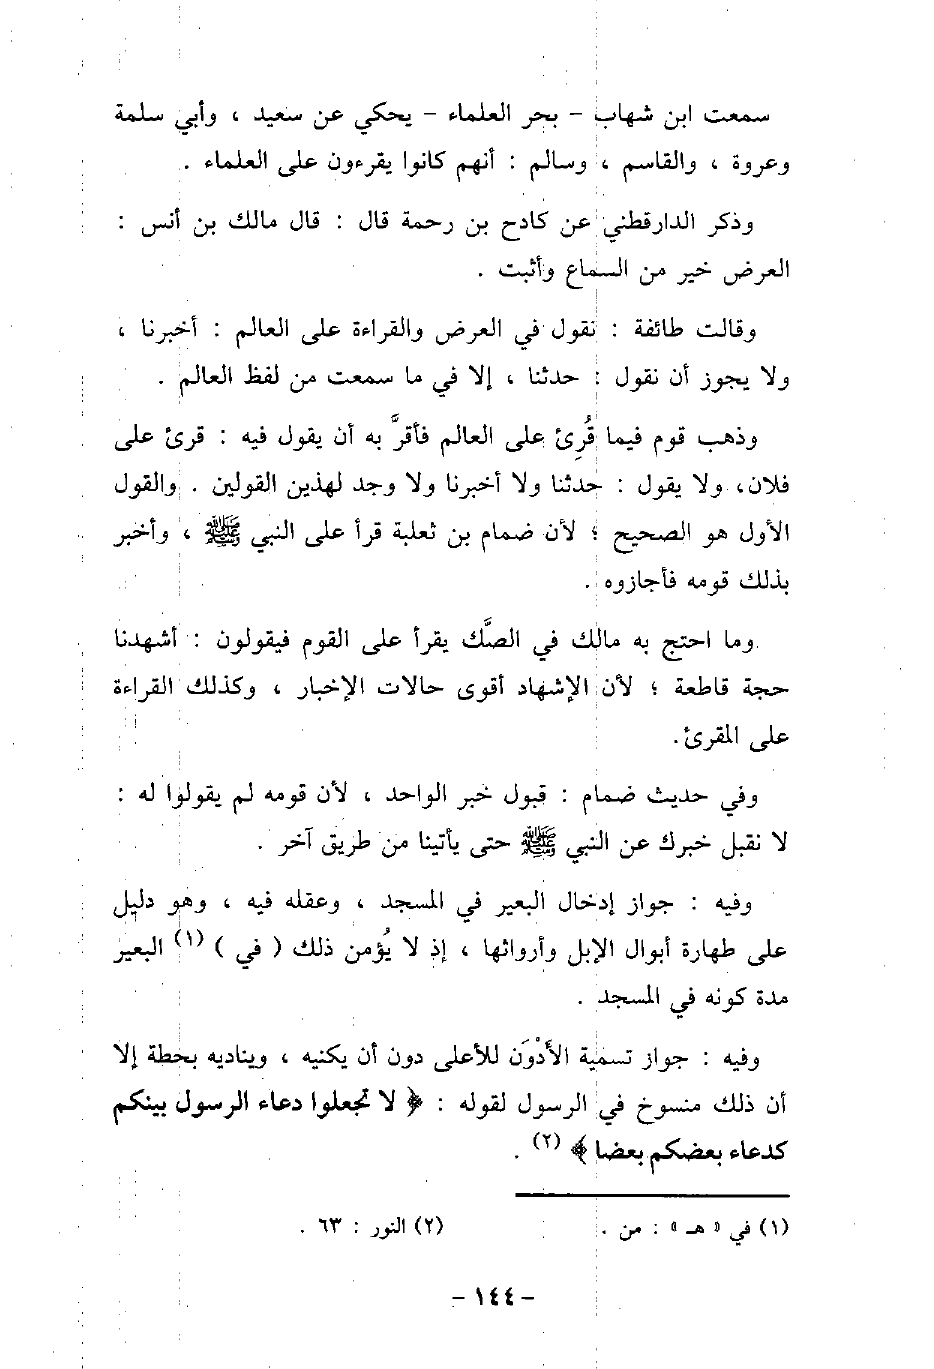 سمعت ابن شهاب - بحر العلماء - يحكي عن سعيد ، وأبي سلمة
وعروة ، والقاسم ، وسالم : أنهم كانوا يقرءون على العلماء .
وذكر الدارقطني عن كادح بن رحمة قال : قال مالك بن أنس :
العرض خير من السماع وأثبت .
وقالت طائفة : نقول في العرض والقراءة على العالم : أخبرنا ،
ولا يجوز أن نقول : حدثنا ، إلا في ما سمعت من لفظ العالم .
وذهب قوم فيما قُرِئ على العالم فأقرَّ به أن يقول فيه : قرئ على
فلان، ولا يقول : حدثنا ولا أخبرنا ولا وجد لهذين القولين . والقول
الأول هو الصحيح ؛ لأن ضمام بن ثعلبة قرأ على النبي ﷺ ، وأخبر
بذلك قومه فأجازوه .
وما احتج به مالك في الصَّك يقرأ على القوم فيقولون : أشهدنا
حجة قاطعة ؛ لأن الإشهاد أقوى حالات الإخبار ، وكذلك القراءة
على المقرئ.
وفي حديث ضمام : قبول خبر الواحد ، لأن قومه لم يقولوا له :
لا نقبل خبرك عن النبي ﷺ حتى يأتينا من طريق آخر .
وفيه : جواز إدخال البعير في المسجد ، وعقله فيه ، وهو دليل
على طهارة أبوال الإبل وأرواثها ، إذ لا يُؤمن ذلك ( في ) (١) البعير
مدة كونه في المسجد .
وفيه : جواز تسمية الأَدْوَن للأعلى دون أن يكنيه ، ويناديه بخطة إلا
أن ذلك منسوخ في الرسول لقوله : ﴿ لا تجعلوا دعاء الرسول بينكم
كدعاء بعضكم بعضا ﴾ (٢) .
(١) في « هـ » : من . (٢) النور : ٦٣ .
- ١٤٤ -